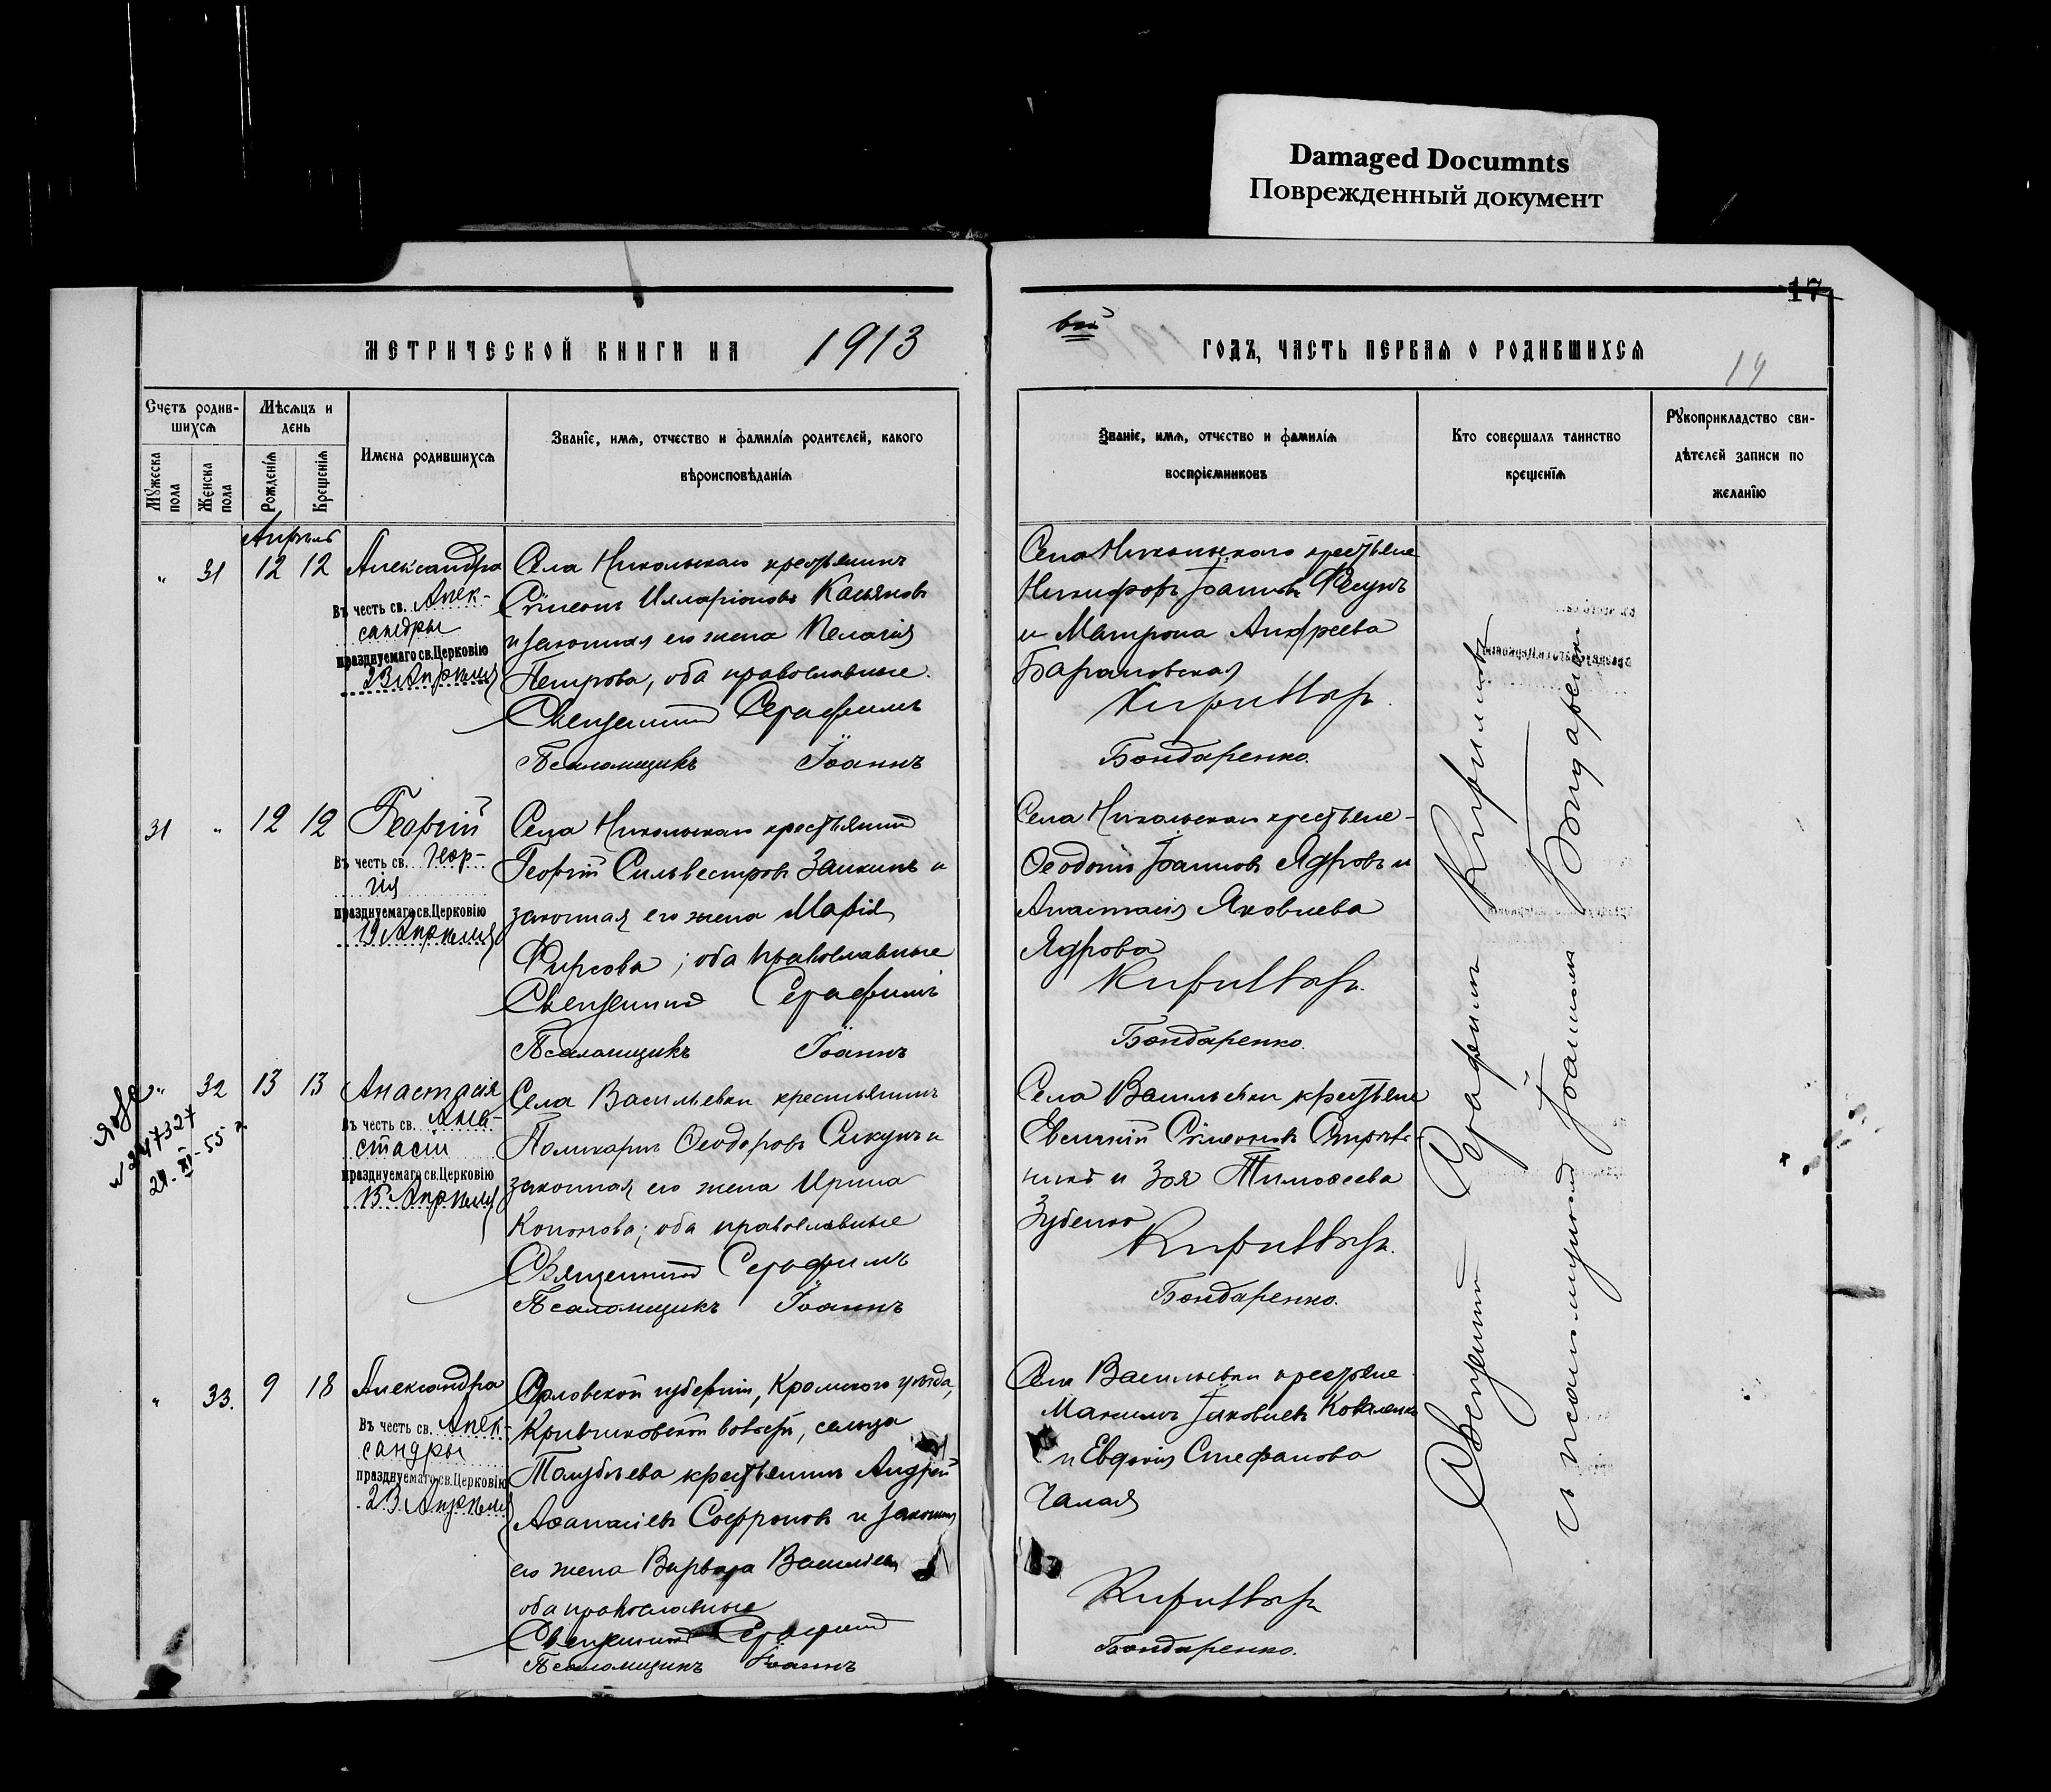 Damaged Documnts
Поврежденный документ
17
МЕТРИЧЕСКОЙ КНИГИ НА 1913
ГОДЪ, ЧАСТЬ ПЕРВАЯ О РОДИВШИХСЯ
Счетъ родив-
шихся
Мѣсяцъ и
день
Мужеска пола
Женска пола
Рожденія
Крещенія
Имена родившихся
Званіе, имя, отчество и фамилія родителей, какого
вѣроисповѣданія
Званіе, имя, отчество и фамилія
воспріемниковъ
Кто совершалъ таинство
крещенія
Рукоприкладство сви-
дѣтелей записи по
желанію
Апрѣль
" 31 12 12 Александра
Въ честь св. Алек-
сандры
празднуемаго св. Церковію
23 Апрѣля
Села Никольскаго крестьянинъ
Сѵмеонъ Илларіоновъ Касьяновъ
и законная его жена Пелагія
Петрова, оба православные.
Священникъ Серафимъ
Псаломщикъ Іоаннъ
Села Никольскаго крестьяне
Никифоръ Іоанновъ Фесунъ
и Матрона Андреева
Барановская
Кирилловъ.
Бондаренко.
31 " 12 12 Георгій
Въ честь св. Геор-
гія
празднуемаго св. Церковію
19 Апрѣля
Села Никольскаго крестьянинъ
Георгій Сильвестровъ Заикинъ и
законная его жена Марія
Фирсова; оба православные
Священникъ Серафимъ
Псаломщикъ Іоаннъ
Села Никольскаго крестьяне
Ѳеодотъ Іоанновъ Ядровъ и
Анастасія Яковлева
Ядрова
Кирилловъ.
Бондаренко.
" 32 13 13 Анастасія
Въ честь св. Ана-
стасіи
празднуемаго св. Церковію
15 Апрѣля
247327
21-XI-55 г.
Села Васильевки крестьянинъ
Поликарпъ Ѳеодоровъ Сикунъ и
законная его жена Ирина
Кононова; оба православные
Священникъ Серафимъ
Псаломщикъ Іоаннъ
Села Васильевки крестьяне
Евгеній Сѵмеоновъ
и Зоя Тимоѳеева
Зубенко
Кирилловъ.
Бондаренко.
" 33. 9 18 Александра
Въ честь св. Алек-
сандры
празднуемаго св. Церковію
23 Апрѣля
Орловской губерніи, Кромскаго уѣзда,
Кривчиковской волости, сельца
Голубѣева крестьянинъ Андрей
Аѳанасіевъ Софроновъ и законная
его жена Варвара Васильева
оба православные
Священникъ Серафимъ
Псаломщикъ Іоаннъ
Села Васильевки крестьяне
Максимъ Іаковлевъ Коваленко
и Евдокія Стефанова
Чалая
Кирилловъ
Бондаренко.
Священникъ Серафимъ Кирилловъ
съ псаломщикомъ Іоанномъ Бондаренко